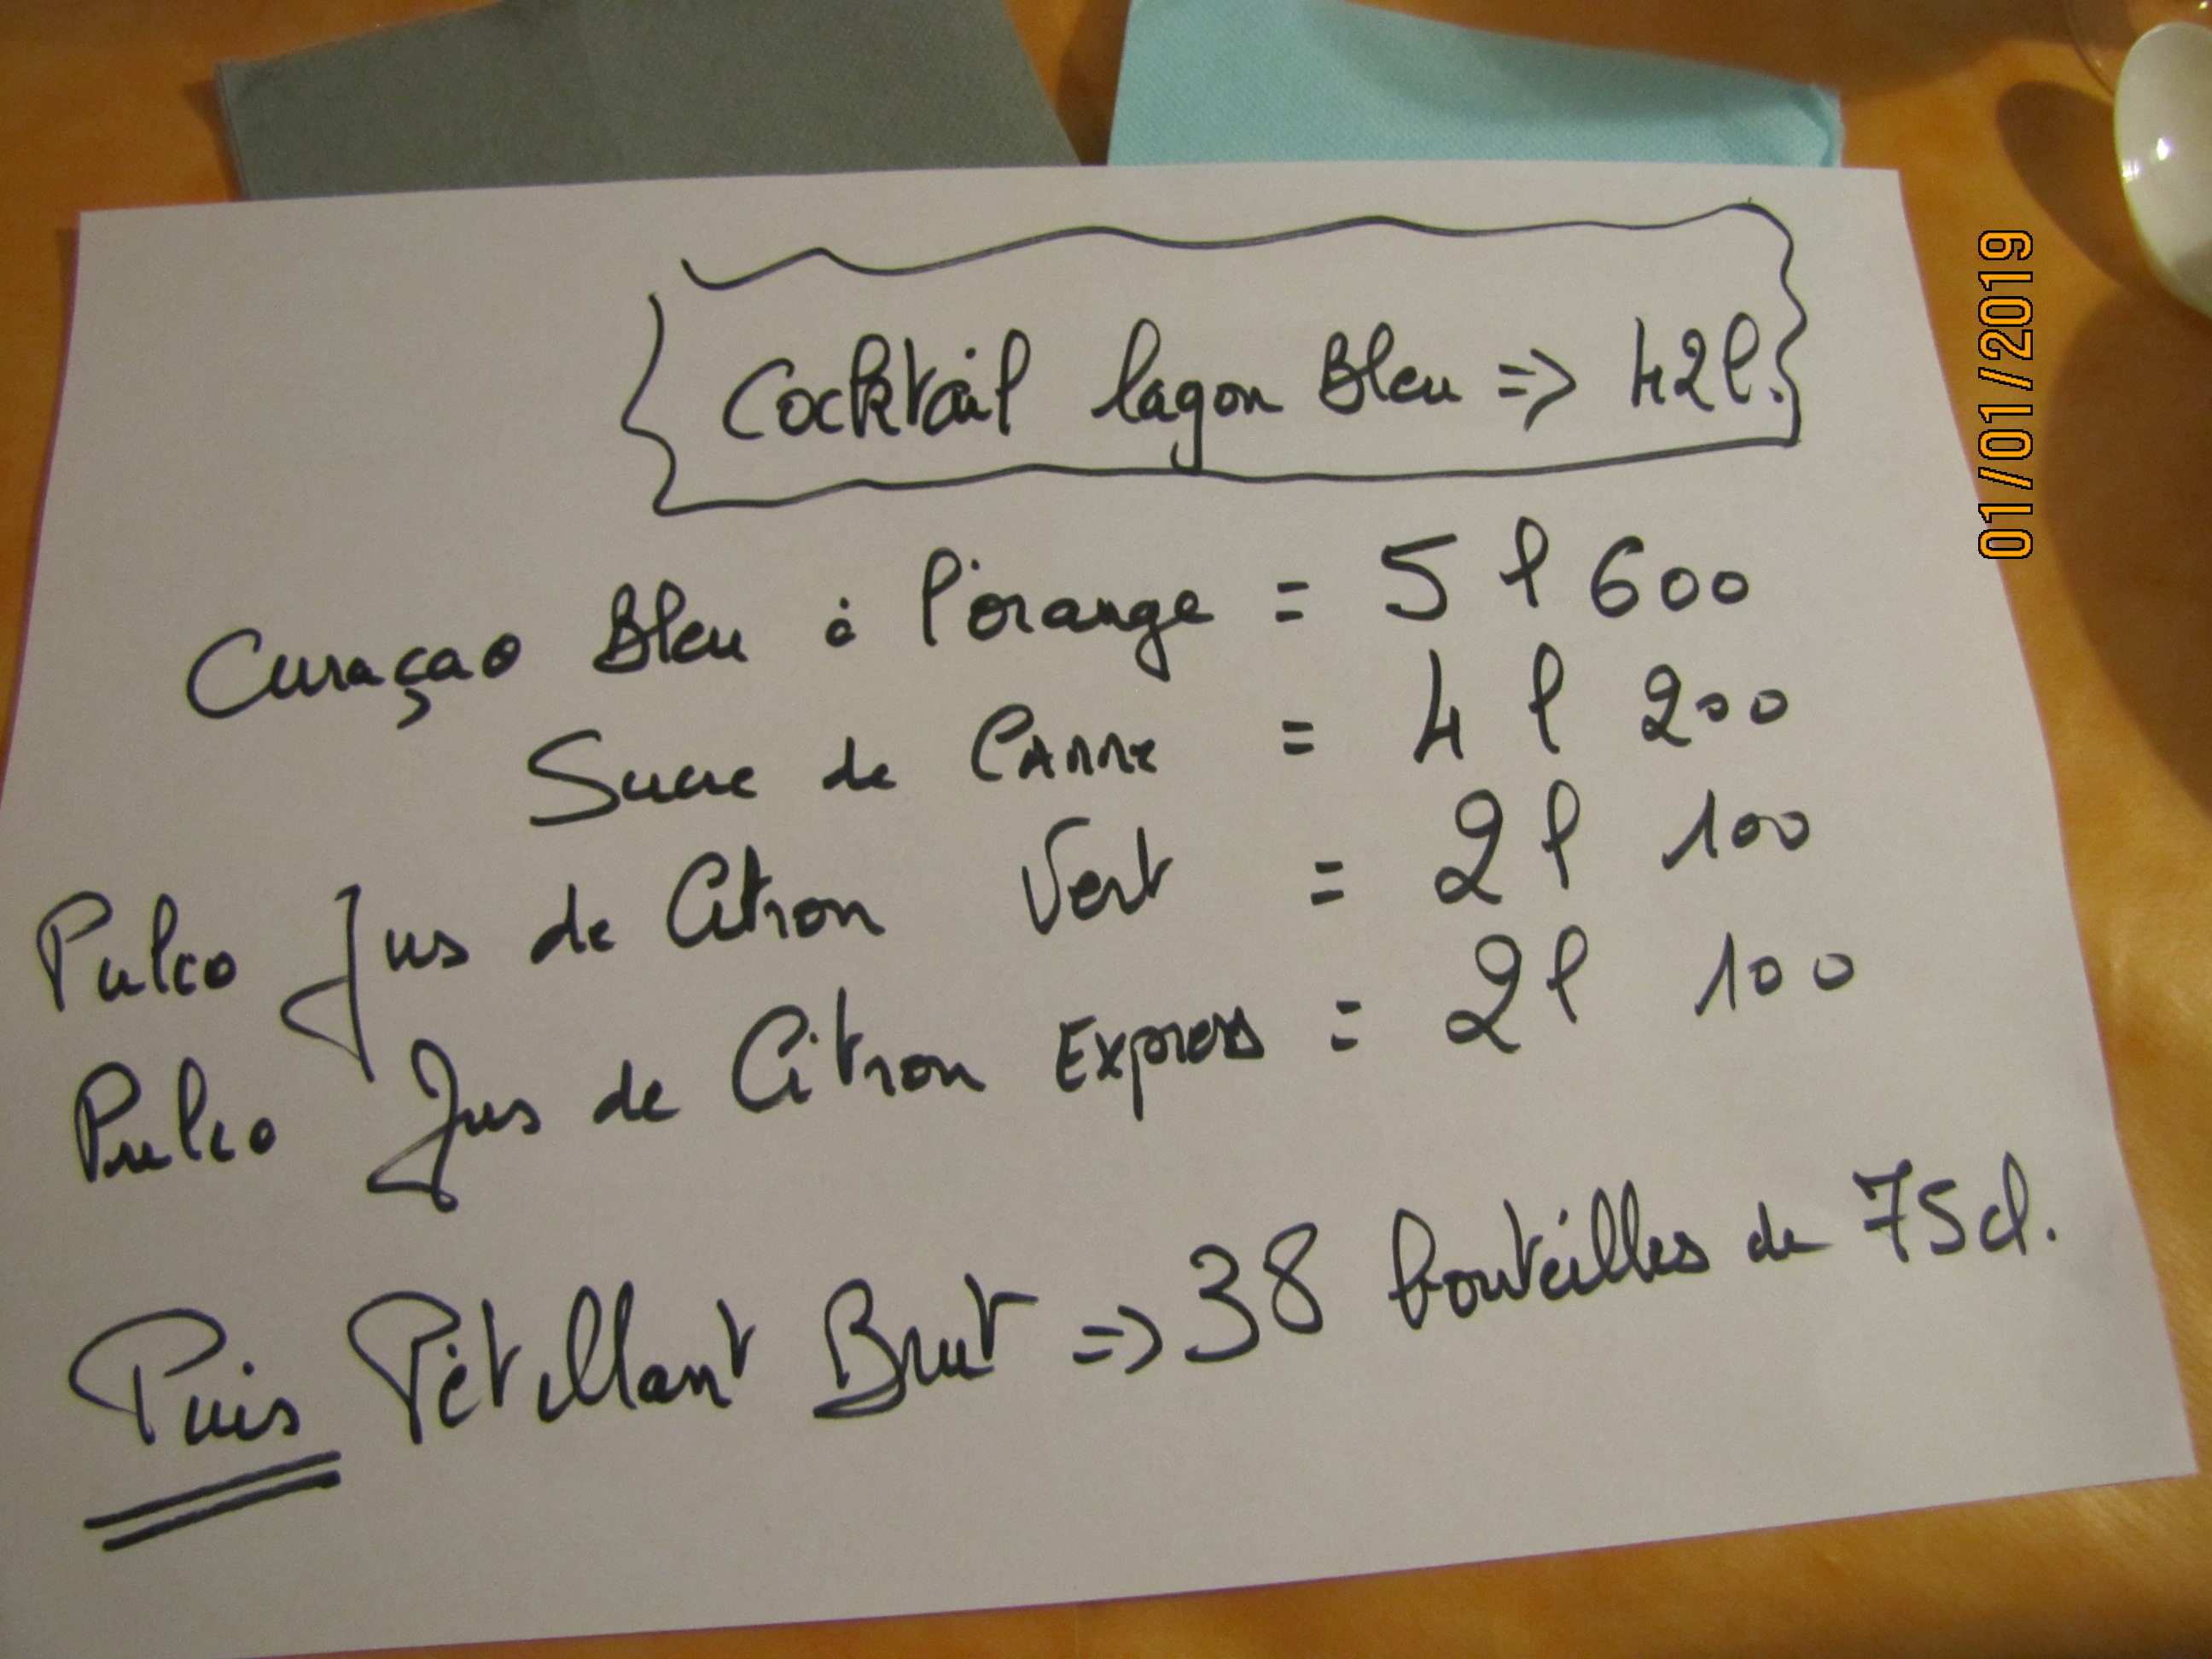 Cocktail lagon Bleu => 42l.
Curaçao Bleu à l'orange = 5 l 600
Sucre de Canne = 4 l 200
Pulco Jus de Citron Vert = 2 l 100
Pulco Jus de Citron Express = 2 l 100
Puis Pétillant Brut => 38 bouteilles de 75cl.
01/01/2019